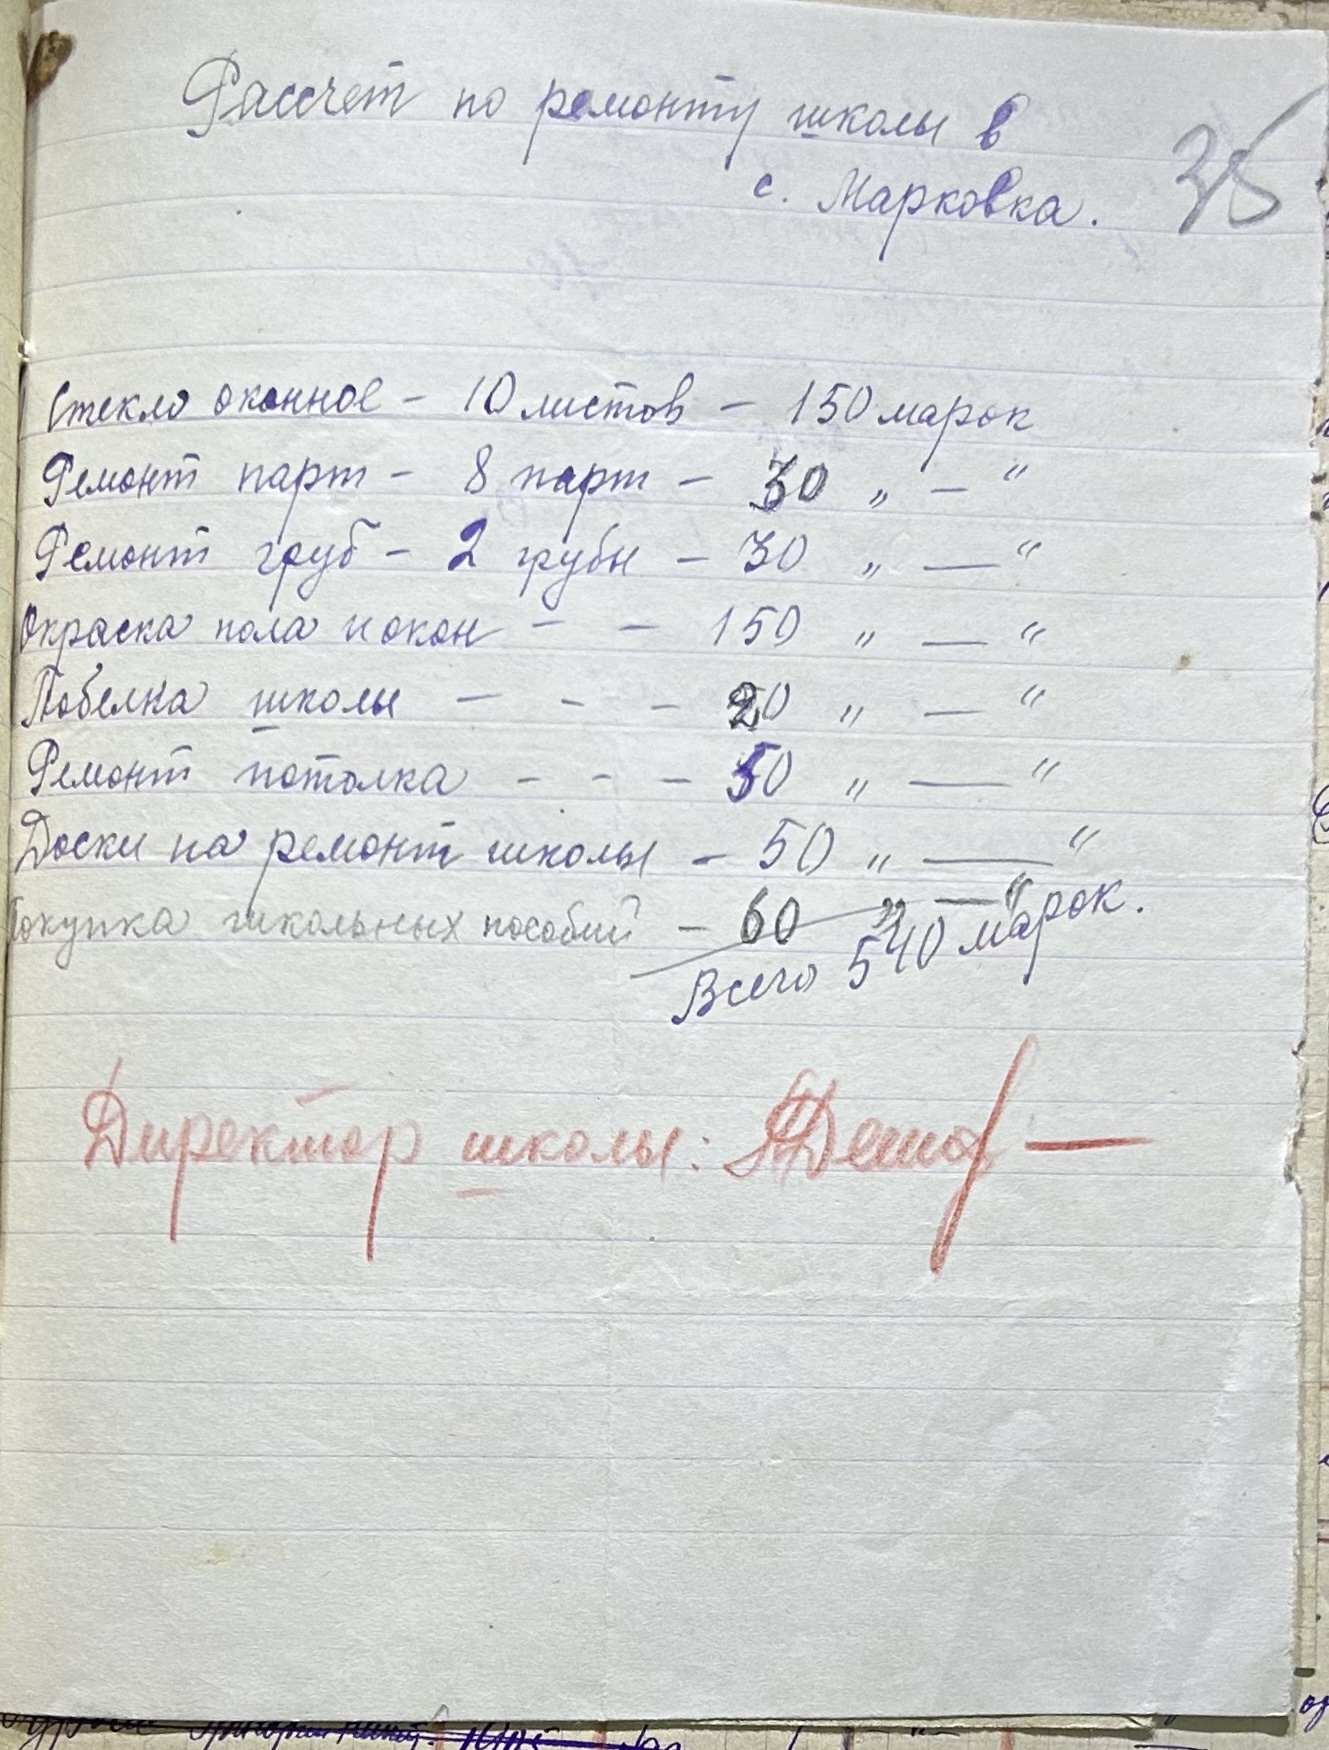 Рассчет по ремонту школы в
с. Марковка.
35
Стекло оконное – 10 листов – 150 марок
Ремонт парт – 8 парт – 30 „ — “
Ремонт груб – 2 грубы – 30 „ — “
Окраска пола и окон – – 150 „ — “
Побелка школы – – – 20 „ — “
Ремонт потолка – – – 50 „ — “
Доски на ремонт школы – 50 „ — “
Покупка школьных пособий – 60 „ — “
Всего 540 марок.
Директор школы: